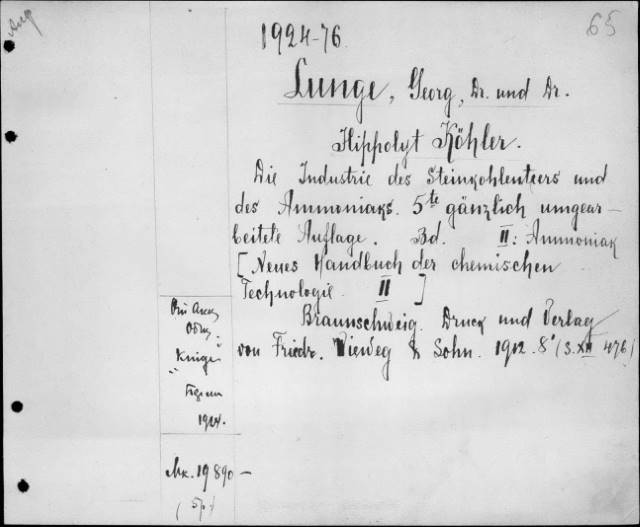 65
1924-76
Lunge, Georg, Dr. und Dr.
Hippolyt Köhler.
Die Industrie des Steinkohlenteers und
des Ammoniaks. 5te gänzlich umgear-
beitete Auflage. Bd. II: Ammoniak
[Neues Handbuch der chemischen
Technologie II]
Braunschweig. Druck und Verlag
von Friedr. Vieweg & Sohn. 1912. 8° (3. XII 476)
1924.
19890-